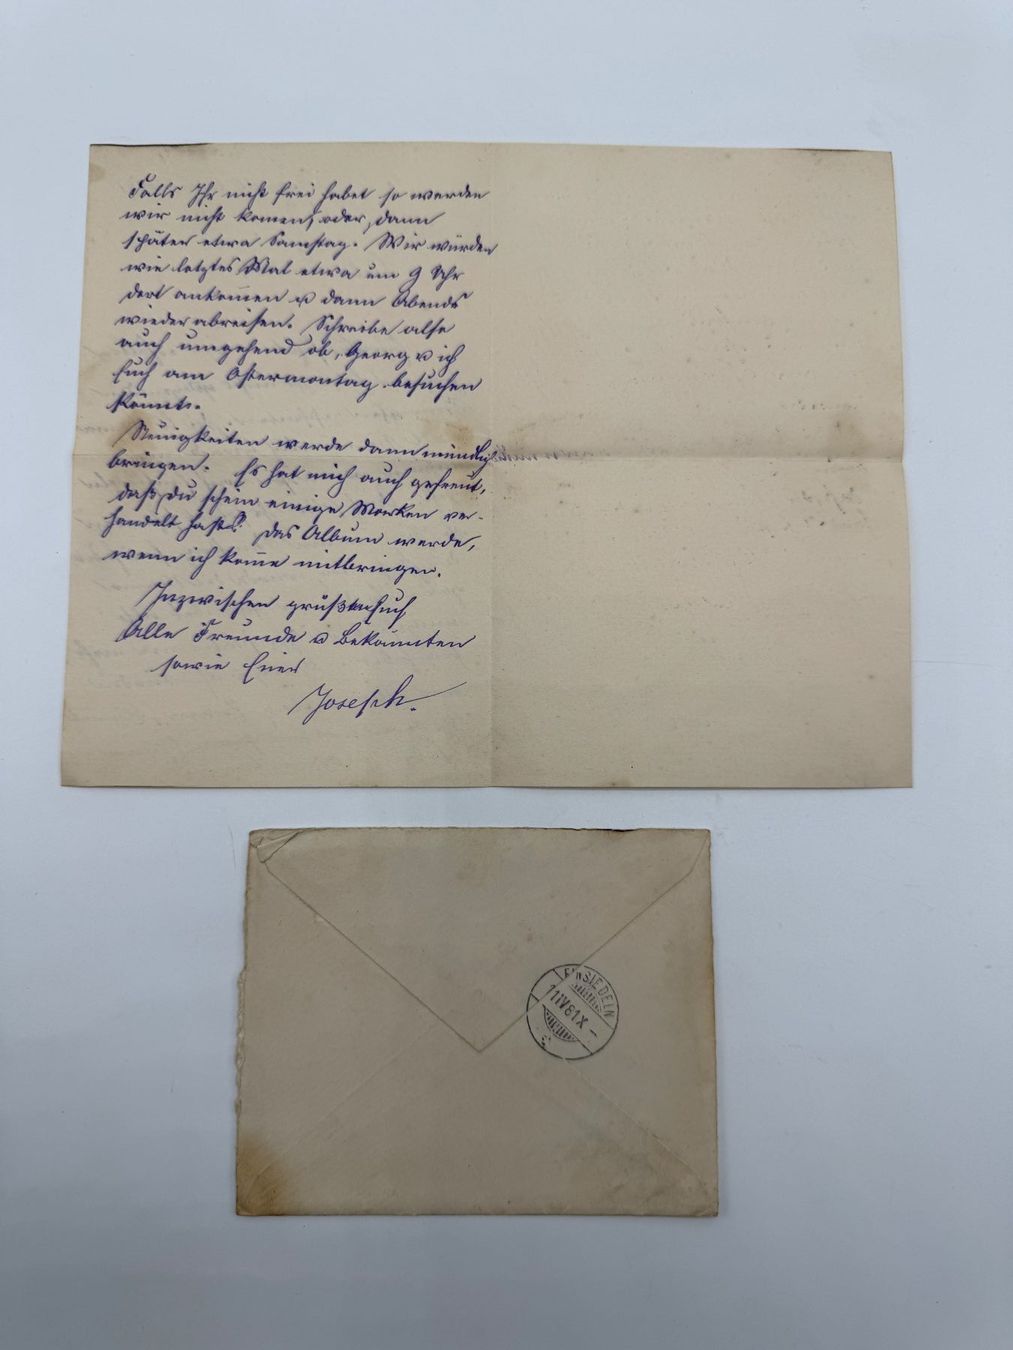 Falls Ihr nicht frei habet so werden
wir nicht komen, oder dann
später etwa Samstag. Wir würden
wie letztes Mal etwa um 9 Uhr
dort ankom̅en u dann Abends
wieder abreisen. Schreibe also
auch umgehend ob, Georg u ich
Euch am Ostermontag besuchen
könnte.
Neuigkeiten werde dann mündlich
bringen. Es hat mich auch gefreut,
daß Du schein einige Marken ver-
handelt hast. Das Album werde,
wenn ich kom̅e mitbringen.
Inzwischen grüßt Euch
Alle Freunde u Bekannten
sowie Euer
Joseph.
EINSIEDELN
11 IV 81 X –